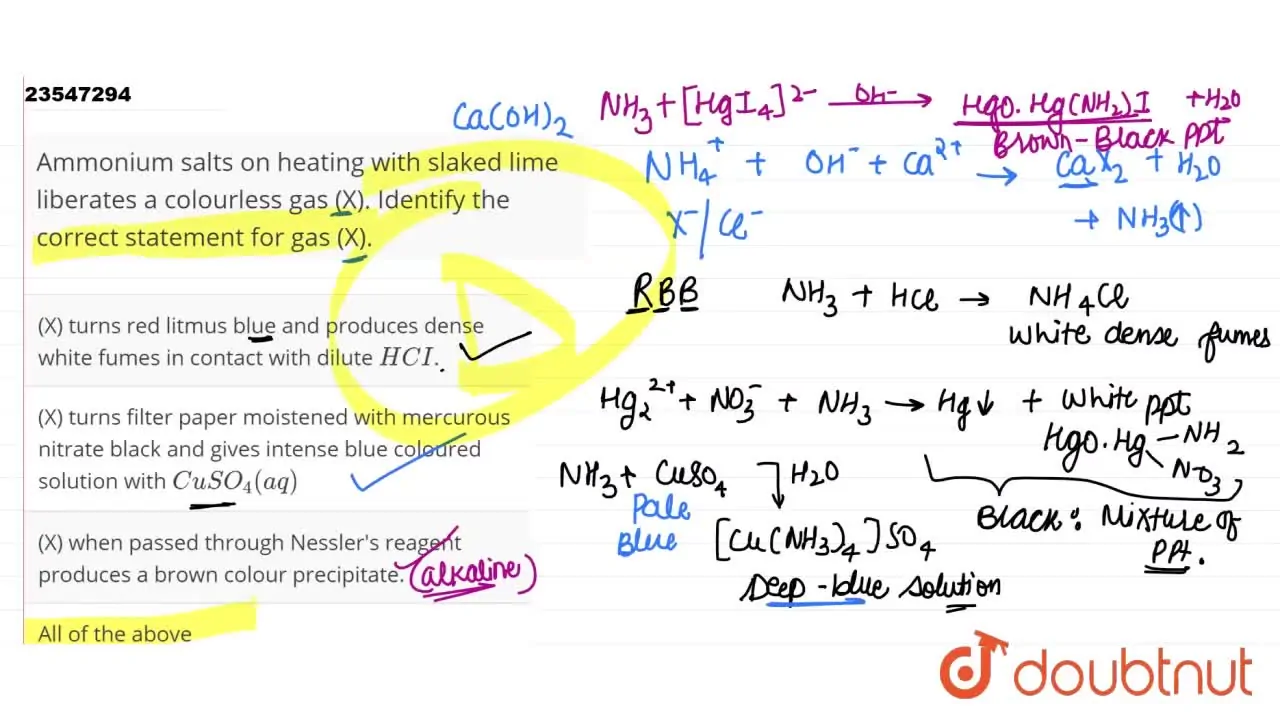 23547294
Ammonium salts on heating with slaked lime
liberates a colourless gas (X). Identify the
correct statement for gas (X).
(X) turns red litmus blue and produces dense
white fumes in contact with dilute HCI.
(X) turns filter paper moistened with mercurous
nitrate black and gives intense blue coloured
solution with CuSO₄(aq)
(X) when passed through Nessler's reagent
produces a brown colour precipitate. (alkaline)
All of the above
Ca(OH)₂
NH₃ + [HgI₄]²⁻ —OH⁻→ HgO.Hg(NH₂)I + H₂O
Brown-Black ppt
NH₄⁺ + OH⁻ + Ca²⁺ → CaX₂ + H₂O
X⁻/Cl⁻ + NH₃(↑)
RBB NH₃ + HCl → NH₄Cl
White dense fumes
Hg₂²⁺ + NO₃⁻ + NH₃ → Hg↓ + White ppt
HgO.Hg NH₂
NO₃
NH₃ + CuSO₄ H₂O
Pale
Blue
[Cu(NH₃)₄]SO₄
Deep-blue solution
Black: Mixture of
ppt.
doubtnut